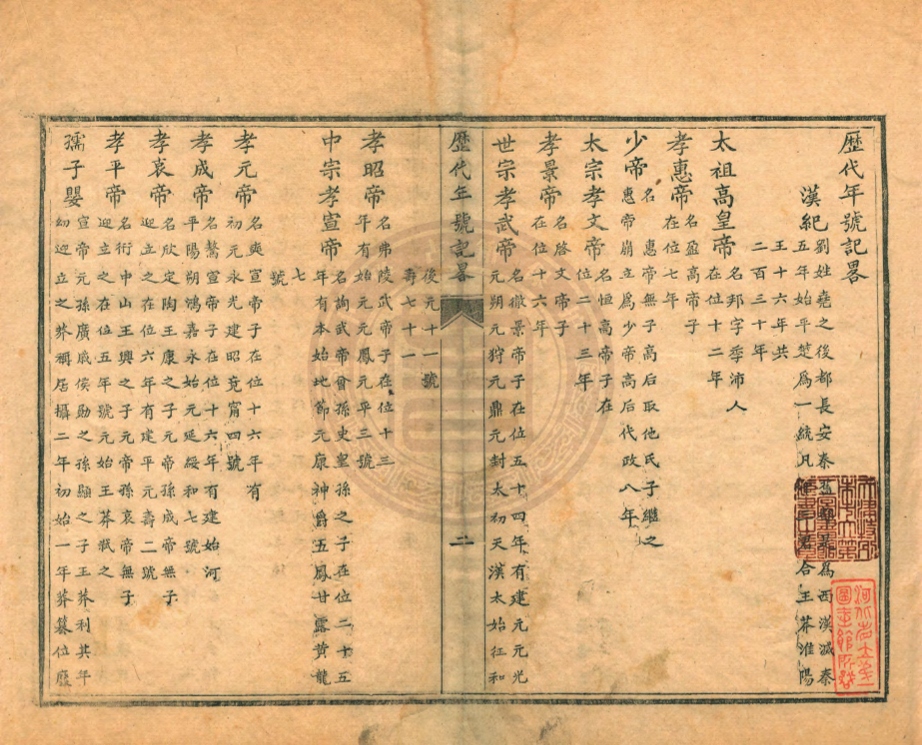 歴代年號記畧
漢紀
劉姓堯之後都長安秦爲西漢滅秦
五年始平楚爲一統凡君合王莽淮陽
王十六年共
二百三十年
太祖高皇帝
名邦字季沛人
在位十二年
孝惠帝
名盈高帝子
在位七年
少帝
名 惠帝無子高后取他氏子繼之
惠帝崩立爲少帝高后代政八年
太宗孝文帝
名恒高帝子在
位二十三年
孝景帝
名啓文帝子
在位十六年
世宗孝武帝
名徹景帝子在位五十四年有建元元光
元朔元狩元鼎元封太初天漢太始征和
歴代年號記畧
二
後元十一號
壽七十一
孝昭帝
名弗陵武帝子在位十三
年有始元元鳳元平三號
中宗孝宣帝
名詢武帝曾孫史皇孫之子在位二十五
年有本始地節元康神爵五鳳甘露黄龍
七
號
孝元帝
名奭宣帝子在位十六年有
初元永光建昭竟甯四號
孝成帝
名驁宣帝子在位十六年有建始河
平陽朔鴻嘉永始元延綏和七號
孝哀帝
名欣定陶王康之子元帝孫成帝無子
迎立之在位六年有建平元壽二號
孝平帝
名衎中山王興之子元帝孫哀帝無子
迎立之在位五年號元始王莽弒之
孺子嬰
宣帝元孫廣戚侯勛之孫顯之子王莽利其年
幼迎立之莽稱居攝二年初始一年莽簒位廢